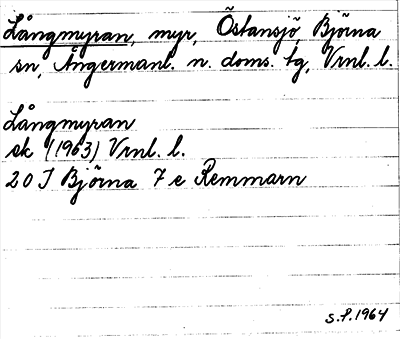 Långmyran, myr, Östansjö, Björna
sn, Ångermanl. n. doms. tg, Vrnl. l.
Långmyran
sk (1963) Vrnl. l.
20 J Björna 7 e Remmarn
S.P. 1964